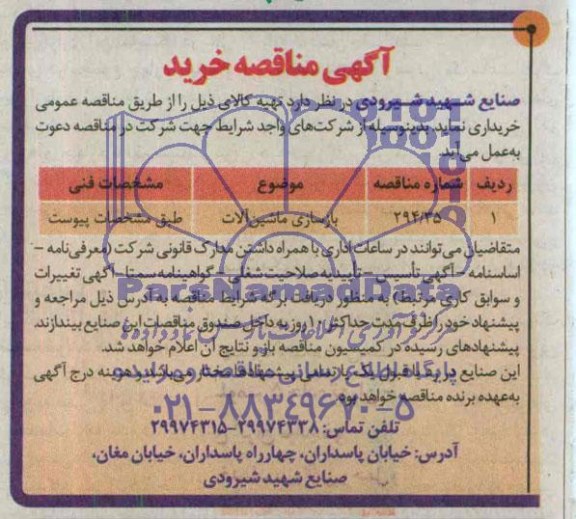 آگهی مناقصه خرید
صنایع شهید شیرودی در نظر دارد تهیه کالای ذیل را از طریق مناقصه عمومی
خریداری نماید. بدینوسیله از شرکت‌های واجد شرایط جهت شرکت در مناقصه دعوت
به‌عمل می‌آید.
ردیف شماره مناقصه موضوع مشخصات فنی
۱ ۲۹۴/۳۵ بازسازی ماشین‌آلات طبق مشخصات پیوست
متقاضیان می‌توانند در ساعات اداری با همراه داشتن مدارک قانونی شرکت (معرفی‌نامه –
اساسنامه – آگهی تأسیس – تأییدیه صلاحیت شغلی – گواهینامه سمتا – آگهی تغییرات
و سوابق کاری مرتبط) به منظور دریافت برگه شرایط مناقصه به آدرس ذیل مراجعه و
پیشنهاد خود را ظرف مدت حداکثر ۱۰ روز به داخل صندوق مناقصات این صنایع بیندازند.
پیشنهادهای رسیده در کمیسیون مناقصه باز و نتایج آن اعلام خواهد شد.
این صنایع در رد یا قبول یک یا تمامی پیشنهادها مختار می‌باشد و هزینه درج آگهی
به‌عهده برنده مناقصه خواهد بود.
تلفن تماس: ۲۹۹۷۴۳۳۸-۲۹۹۷۴۳۱۵
آدرس: خیابان پاسداران، چهارراه پاسداران، خیابان مغان،
صنایع شهید شیرودی
ParsNamadData
پایگاه اطلاع رسانی مناقصه و مزایده
۰۲۱-۸۸۳۴۹۶۷۰-۵